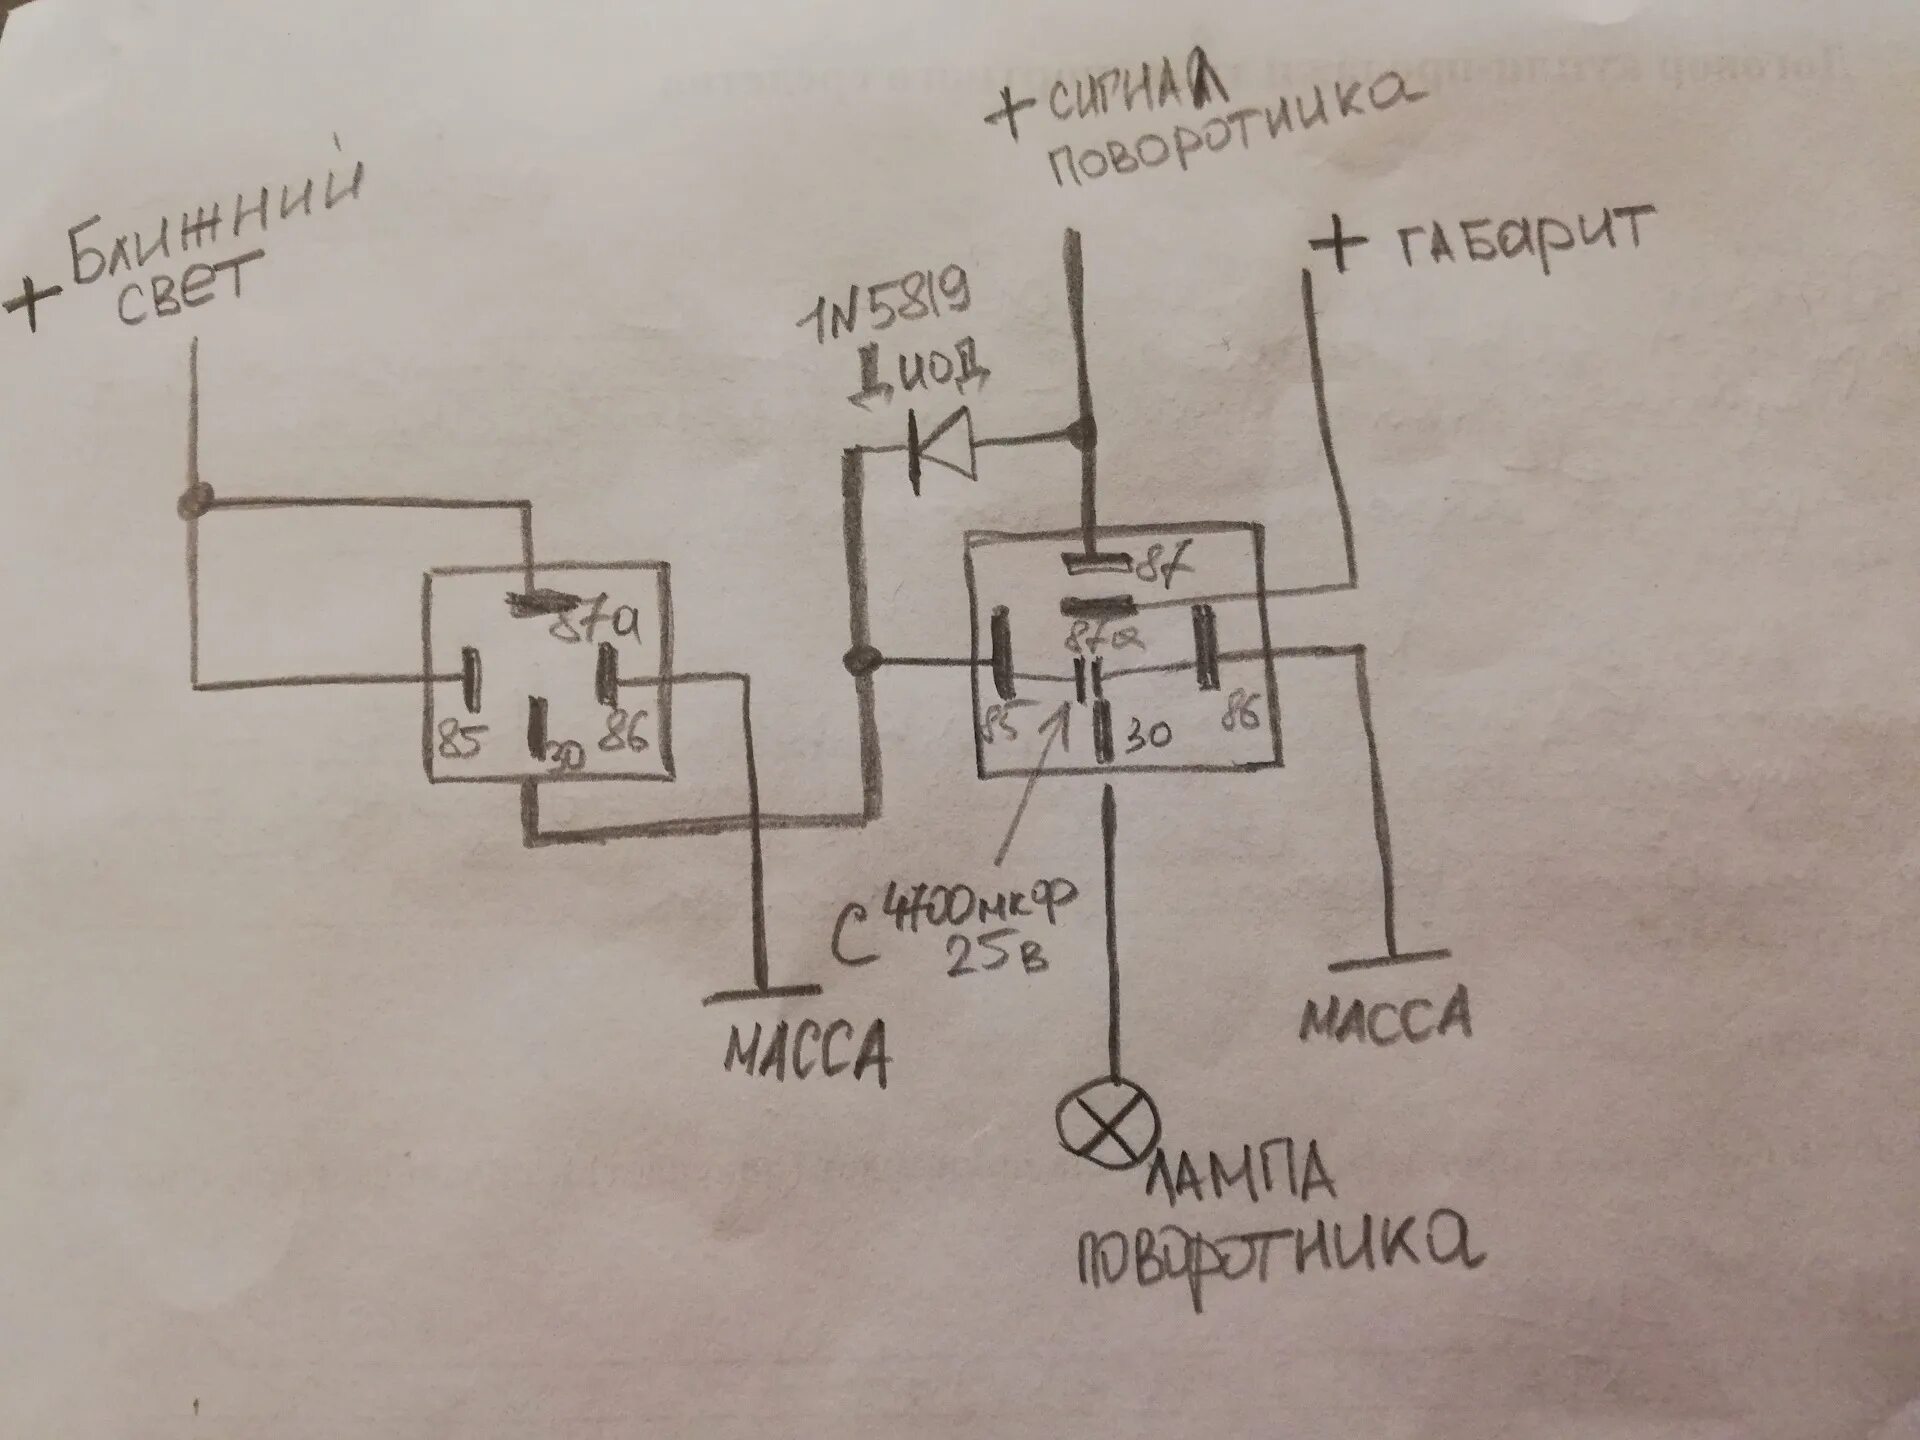 + Ближний
свет
+ сигнал
поворотника
+ габарит
1N5819
Диод
87
87а
87а
85
30
86
85
30
86
С 4700мкф
25в
масса
масса
лампа
поворотника